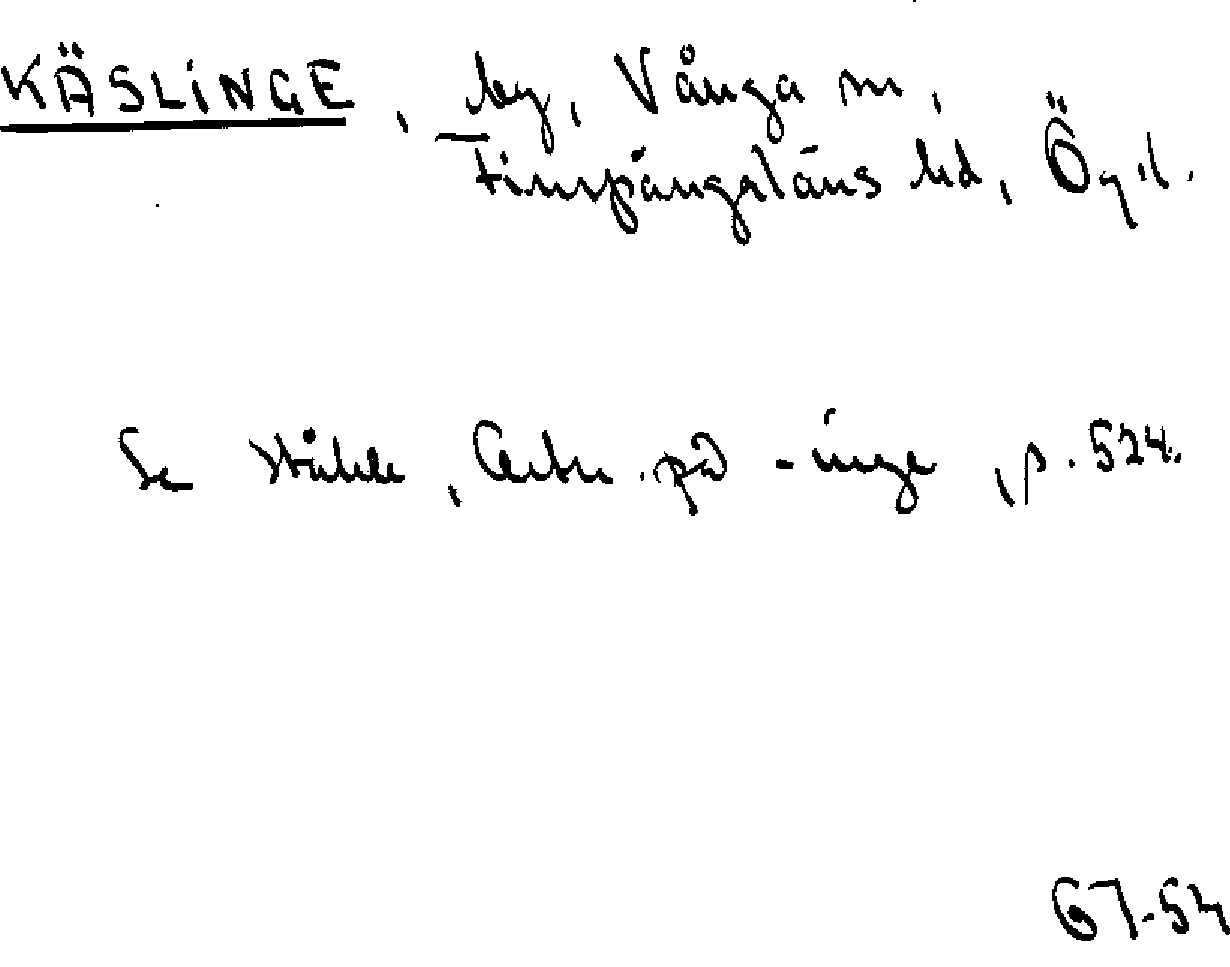 KÄSLINGE, by, Vånga sn,
Finspångaläns hd, Ög.l.
Se Ståhle, Ortn. på -inge, p. 524.
67-54